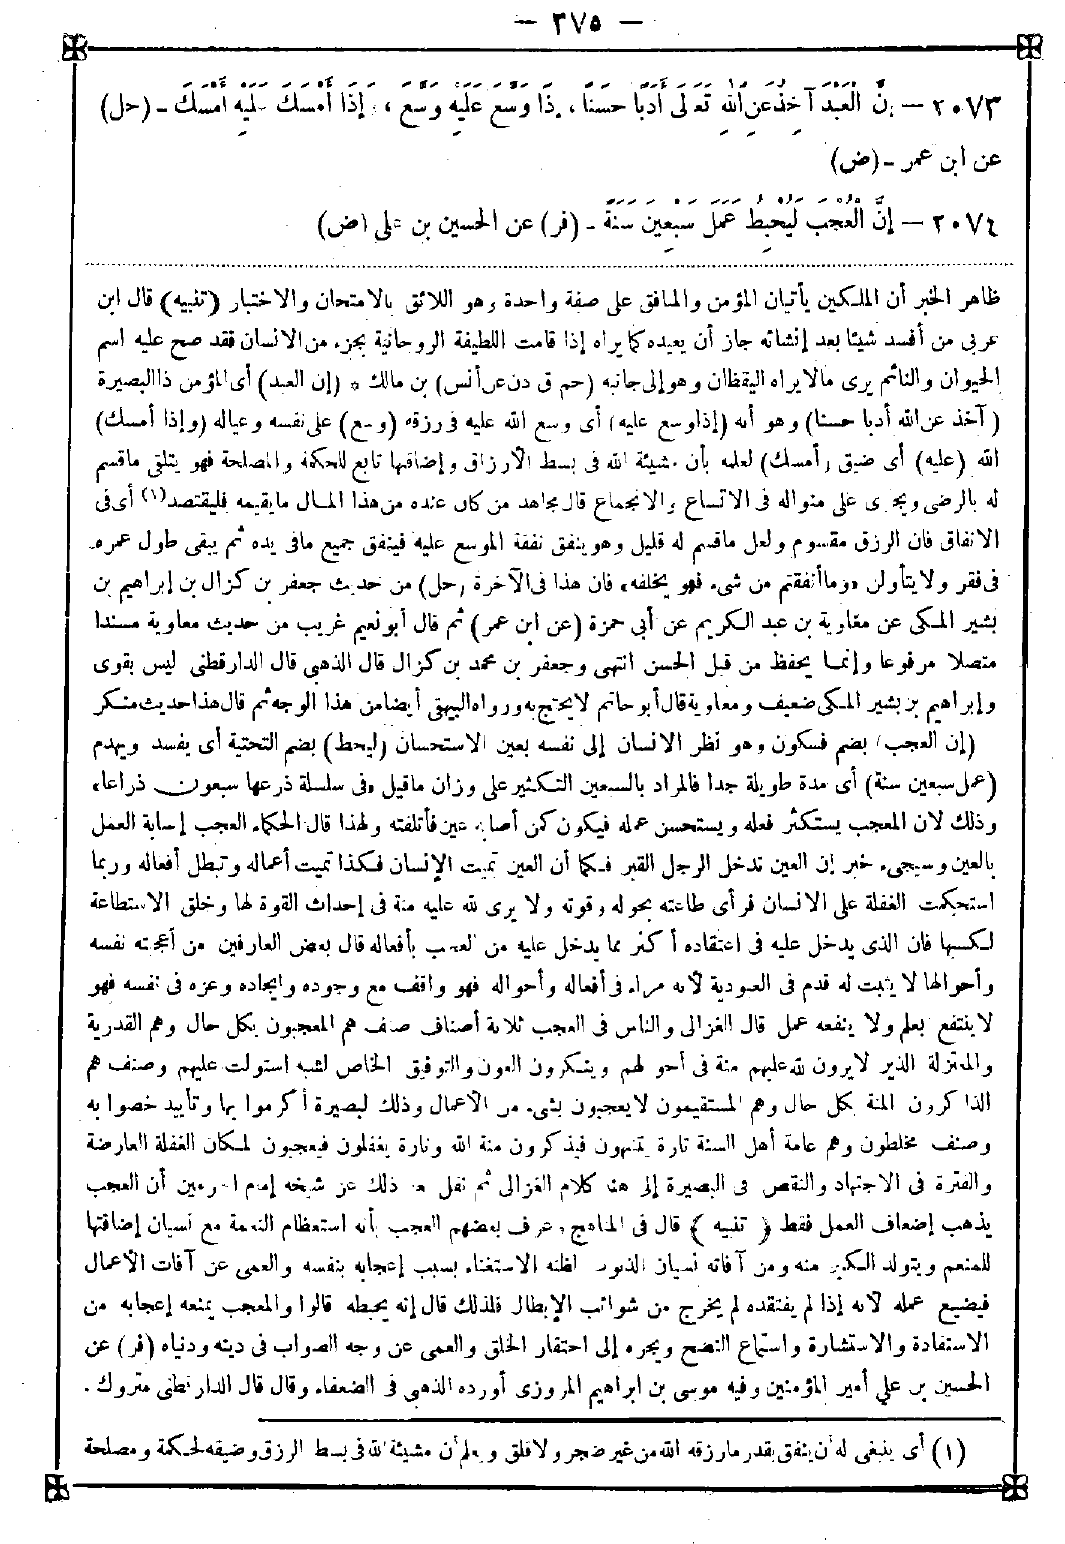 — ٣٧٥ —
٢٠٧٣ — إِنَّ الْعَبْدَ آخِذٌ عَنِ اللهِ تَعَالَى أَدَبًا حَسَنًا، إِذَا وَسَّعَ عَلَيْهِ وَسَّعَ، وَإِذَا أَمْسَكَ عَلَيْهِ أَمْسَكَ ـ (حل)
عن ابن عمر ـ (ض)
٢٠٧٤ — إِنَّ الْعُجْبَ لَيُحْبِطُ عَمَلَ سَبْعِينَ سَنَةً ـ (فر) عن الحسين بن على (ض)
ظاهر الخبر أن الملكين يأتيان المؤمن والمنافق على صفة واحدة وهو اللائق بالامتحان والاختبار (تنبيه) قال ابن
عربى من أفسد شيئا بعد إنشائه جاز أن يعيده كما يراه إذا قامت اللطيفة الروحانية بجزء من الانسان فقد صح عليه اسم
الحيوان والنائم يرى مالا يراه اليقظان وهو إلى جانبه (حم ق د ن عن أنس) بن مالك * (إن العبد) أى المؤمن ذا البصيرة
(آخذ عن الله أدبا حسنا) وهو أنه (إذا وسع عليه) أى وسع الله عليه فى رزقه (وسع) على نفسه وعياله (وإذا أمسك)
الله (عليه) أى ضيق (أمسك) لعلمه بأن مشيئة الله فى بسط الأرزاق وإضافتها تابع للحكمة والمصلحة فهو يتلقى ماقسم
له بالرضى ويجرى على منواله فى الاتساع والانجماع قال مجاهد من كان عنده من هذا المال مايقيمه فليقتصد (١) أى فى
الانفاق فان الرزق مقسوم ولعل ماقسم له قليل وهو ينفق نفقة الموسع عليه فينفق جميع مافى يده ثم يبقى طول عمره
فى فقر ولا يتأولن «وما أنفقتم من شىء فهو يخلفه» فان هذا فى الآخرة (حل) من حديث جعفر بن كزال بن إبراهيم بن
بشير المكى عن معاوية بن عبد الكريم عن أبى حمزة (عن ابن عمر) ثم قال أبو نعيم غريب من حديث معاوية مسندا
متصلا مرفوعا وإنما يحفظ من قبل الحسن انتهى وجعفر بن محمد بن كزال قال الذهبى قال الدارقطنى ليس بقوى
وإبراهيم بن بشير المكى ضعيف ومعاوية قال أبو حاتم لا يحتج به ورواه البيهقى أيضا من هذا الوجه ثم قال هذا حديث منكر
(إن العجب) بضم فسكون وهو نظر الانسان إلى نفسه بعين الاستحسان (ليحبط) بضم التحتية أى يفسد ويهدم
(عمل سبعين سنة) أى مدة طويلة جدا فالمراد بالسبعين التكثير على وزان ماقيل «فى سلسلة ذرعها سبعون ذراعا»
وذلك لان المعجب يستكثر فعله ويستحسن عمله فيكون كمن أصابه عين فأتلفته ولهذا قال الحكماء العجب إصابة العمل
بالعين وسيجىء خبر إن العين تدخل الرجل القبر فكما أن العين تميت الإنسان فكذا تميت أعماله وتبطل أفعاله وربما
استحكمت الغفلة على الانسان فرأى طاعته بحوله وقوته ولا يرى لله عليه منة فى إحداث القوة لها وخلق الاستطاعة
لكسبها فان الذى يدخل عليه فى اعتقاده أكثر مما يدخل عليه من العجب بأفعاله قال بعض العارفين من أعجبته نفسه
وأحوالها لا يثبت له قدم فى العبودية لأنه مراء فى أفعاله وأحواله فهو واقف مع وجوده وايجاده وعزه فى نفسه فهو
لا ينتفع بعلم ولا ينفعه عمل قال الغزالى والناس فى العجب ثلاثة أصناف صنف هم المعجبون بكل حال وهم القدرية
والمعتزلة الذين لا يرون لله عليهم منة فى أحوالهم وينكرون العون والتوفيق الخاص لشبه استولت عليهم وصنف هم
الذاكرون المنة بكل حال وهم المستقيمون لا يعجبون بشىء من الأعمال وذلك لبصيرة أكرموا بها وتأييد خصوا به
وصنف مخلطون وهم عامة أهل السنة تارة يتنبهون فيذكرون منة الله وتارة يغفلون فيعجبون لمكان الغفلة العارضة
والفترة فى الاجتهاد والنقص فى البصيرة إلى هنا كلام الغزالى ثم نقل بعد ذلك عن شيخه إمام الحرمين أن العجب
يذهب إضعاف العمل فقط (تنبيه) قال فى المناهج وعرف بعضهم العجب بأنه استعظام النعمة مع نسيان إضافتها
للمنعم ويتولد الكبر منه ومن آفاته نسيان الذنوب لظنه الاستغناء بسبب إعجابه بنفسه والعمى عن آفات الأعمال
فيضيع عمله لأنه إذا لم يفتقده لم يخرج من شوائب الإبطال فلذلك قال إنه يحبطه قالوا والمعجب يمنعه إعجابه من
الاستفادة والاستشارة واستماع النصح ويجره إلى احتقار الخلق والعمى عن وجه الصواب فى دينه ودنياه (فر) عن
الحسين بن على أمير المؤمنين وفيه موسى بن ابراهيم المروزى أورده الذهبى فى الضعفاء وقال قال الدارقطنى متروك.
(١) أى ينبغى له أن ينفق بقدر مارزقه الله من غير ضجر ولا قلق ويعلم أن مشيئة الله فى بسط الرزق وضيقه لحكمة ومصلحة